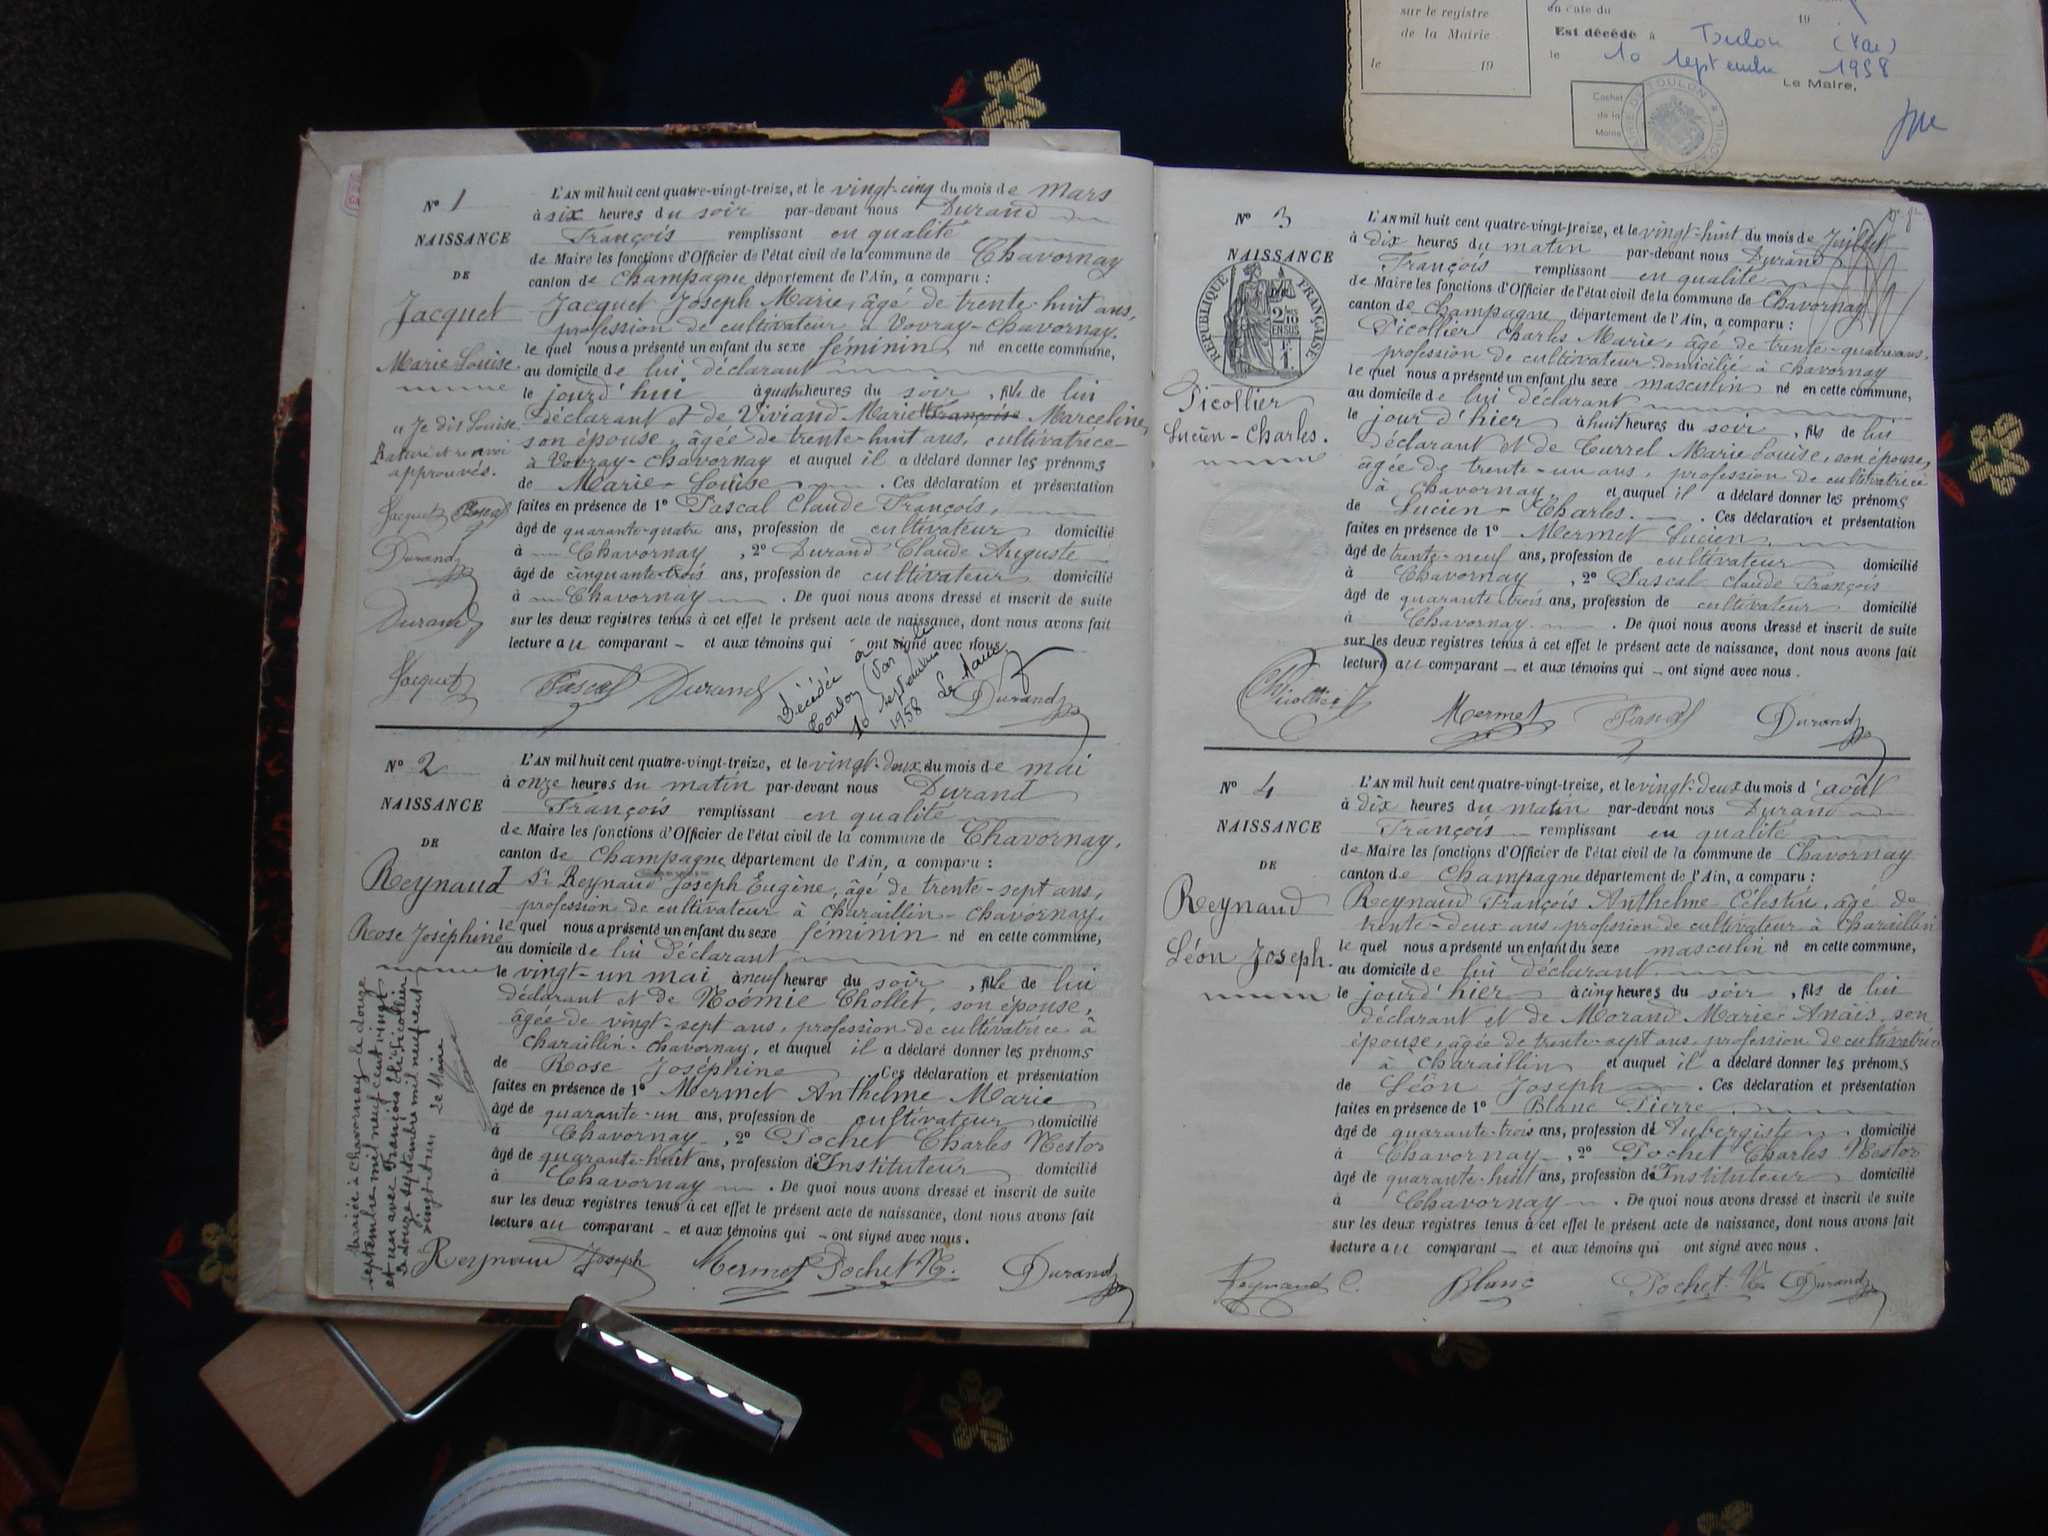 N° 1
NAISSANCE
DE
Jacquet
Marie Louise
"Je dis Louise
Rature et renvoi
approuvés.
Jacquet Pascal
Durand
Durand
L'AN mil huit cent quatre-vingt-treize, et le vingt-cinq du mois de Mars
à six heures du soir par-devant nous Durand
François remplissant en qualité
de Maire les fonctions d'Officier de l'état civil de la commune de Chavornay
canton de Champagne département de l'Ain, a comparu :
Jacquet Joseph Marie, âgé de trente-huit ans,
profession de cultivateur à Vovray-Chavornay.
le quel nous a présenté un enfant du sexe féminin né en cette commune,
au domicile de lui déclarant
le jourd'hui à quatre heures du soir, fille de lui
déclarant et de Viviand-Marie Françoise Marceline,
son épouse, âgée de trente-huit ans, cultivatrice
à Vovray-Chavornay et auquel il a déclaré donner les prénoms
de Marie-Louise. Ces déclaration et présentation
faites en présence de 1° Pascal Claude François,
âgé de quarante-quatre ans, profession de cultivateur domicilié
à Chavornay, 2° Durand Claude Auguste
âgé de cinquante-trois ans, profession de cultivateur domicilié
à Chavornay. De quoi nous avons dressé et inscrit de suite
sur les deux registres tenus à cet effet le présent acte de naissance, dont nous avons fait
lecture au comparant et aux témoins qui ont signé avec nous
Jacquet Pascal Durand Durand
Décédée à
Toulon (Var) le
10 septembre
1958 Le Maire
N° 2
NAISSANCE
DE
Reynaud
Rose Joséphine
Mariée à Chavornay le douze
septembre mil neuf cent vingt
et un avec François Picollier
le douze septembre mil neuf cent
vingt et un Le Maire
L'AN mil huit cent quatre-vingt-treize, et le vingt-deux du mois de mai
à onze heures du matin par-devant nous Durand
François remplissant en qualité
de Maire les fonctions d'Officier de l'état civil de la commune de Chavornay,
canton de Champagne département de l'Ain, a comparu :
Sr Reynaud Joseph Eugène, âgé de trente-sept ans,
profession de cultivateur à Charaillin-Chavornay,
le quel nous a présenté un enfant du sexe féminin né en cette commune,
au domicile de lui déclarant
le vingt-un mai à neuf heures du soir, fille de lui
déclarant et de Noémie Chollet, son épouse,
âgée de vingt-sept ans, profession de cultivatrice à
Charaillin-Chavornay, et auquel il a déclaré donner les prénoms
de Rose Joséphine Ces déclaration et présentation
faites en présence de 1° Mermet Anthelme Marie
âgé de quarante-un ans, profession de cultivateur domicilié
à Chavornay, 2° Pochet Charles Nestor
âgé de quarante-huit ans, profession d'Instituteur domicilié
à Chavornay. De quoi nous avons dressé et inscrit de suite
sur les deux registres tenus à cet effet le présent acte de naissance, dont nous avons fait
lecture au comparant et aux témoins qui ont signé avec nous.
Reynaud Joseph Mermet Pochet N. Durand
N° 3
NAISSANCE
RÉPUBLIQUE FRANÇAISE
2/10 EN SUS
Picollier
Lucien-Charles.
L'AN mil huit cent quatre-vingt-treize, et le vingt-huit du mois de Juillet
à dix heures du matin par-devant nous Durand
François remplissant en qualité
de Maire les fonctions d'Officier de l'état civil de la commune de Chavornay
canton de Champagne département de l'Ain, a comparu :
Picollier Charles Marie, âgé de trente-quatre ans,
profession de cultivateur domicilié à Chavornay
le quel nous a présenté un enfant du sexe masculin né en cette commune,
au domicile de lui déclarant
le jour d'hier à huit heures du soir, fils de lui
déclarant et de Turrel Marie Louise, son épouse,
âgée de trente-un ans, profession de cultivatrice
à Chavornay et auquel il a déclaré donner les prénoms
de Lucien-Charles. Ces déclaration et présentation
faites en présence de 1° Mermet Lucien,
âgé de trente-neuf ans, profession de cultivateur domicilié
à Chavornay, 2° Pascal Claude François
âgé de quarante-trois ans, profession de cultivateur domicilié
à Chavornay. De quoi nous avons dressé et inscrit de suite
sur les deux registres tenus à cet effet le présent acte de naissance, dont nous avons fait
lecture au comparant et aux témoins qui ont signé avec nous.
Picollier Mermet Pascal Durand
N° 4
NAISSANCE
DE
Reynaud
Léon Joseph.
L'AN mil huit cent quatre-vingt-treize, et le vingt-deux du mois d'août
à dix heures du matin par-devant nous Durand
François remplissant en qualité
de Maire les fonctions d'Officier de l'état civil de la commune de Chavornay
canton de Champagne département de l'Ain, a comparu :
Reynaud François Anthelme Célestin, âgé de
trente-deux ans, profession de cultivateur à Charaillin
le quel nous a présenté un enfant du sexe masculin né en cette commune,
au domicile de lui déclarant
le jour d'hier à cinq heures du soir, fils de lui
déclarant et de Morand Marie-Anaïs, son
épouse, âgée de trente-sept ans, profession de cultivatrice
à Charaillin et auquel il a déclaré donner les prénoms
de Léon Joseph. Ces déclaration et présentation
faites en présence de 1° Blanc Pierre
âgé de quarante-trois ans, profession d'Aubergiste domicilié
à Chavornay, 2° Pochet Charles Nestor
âgé de quarante-huit ans, profession d'Instituteur domicilié
à Chavornay. De quoi nous avons dressé et inscrit de suite
sur les deux registres tenus à cet effet le présent acte de naissance, dont nous avons fait
lecture au comparant et aux témoins qui ont signé avec nous.
Reynaud C. Blanc Pochet N. Durand
sur le registre
de la Mairie
le 19
en date du 19
Est décédé à Toulon (Var)
le 10 septembre 1958
Le Maire,
Cachet
de la
Mairie
MAIRIE DE TOULON